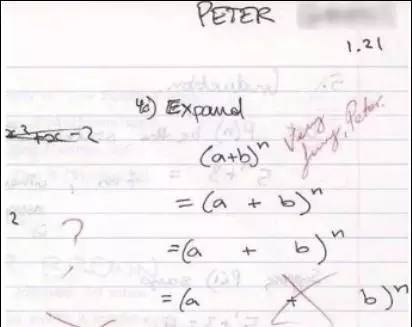 PETER
1.21
4c) Expand
x² + x - 2
(a+b)ⁿ
Very funny, Peter.
= (a + b)ⁿ
2
?
= (a + b)ⁿ
= (a + b)ⁿ